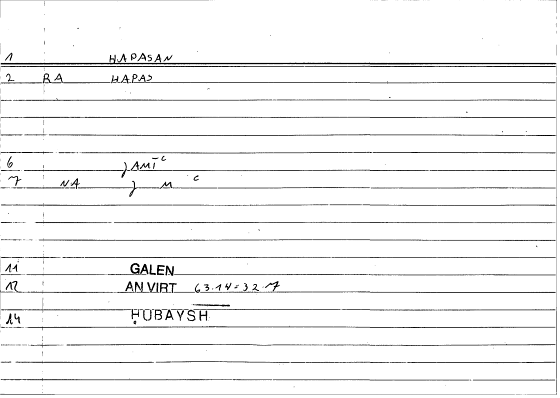 1 HAPASAN
2 RA HAPAS
6 JAMĪ ᶜ
7 NA J M ᶜ
11 GALEN
12 AN VIRT 63.14=32.7
14 ḤUBAYSH